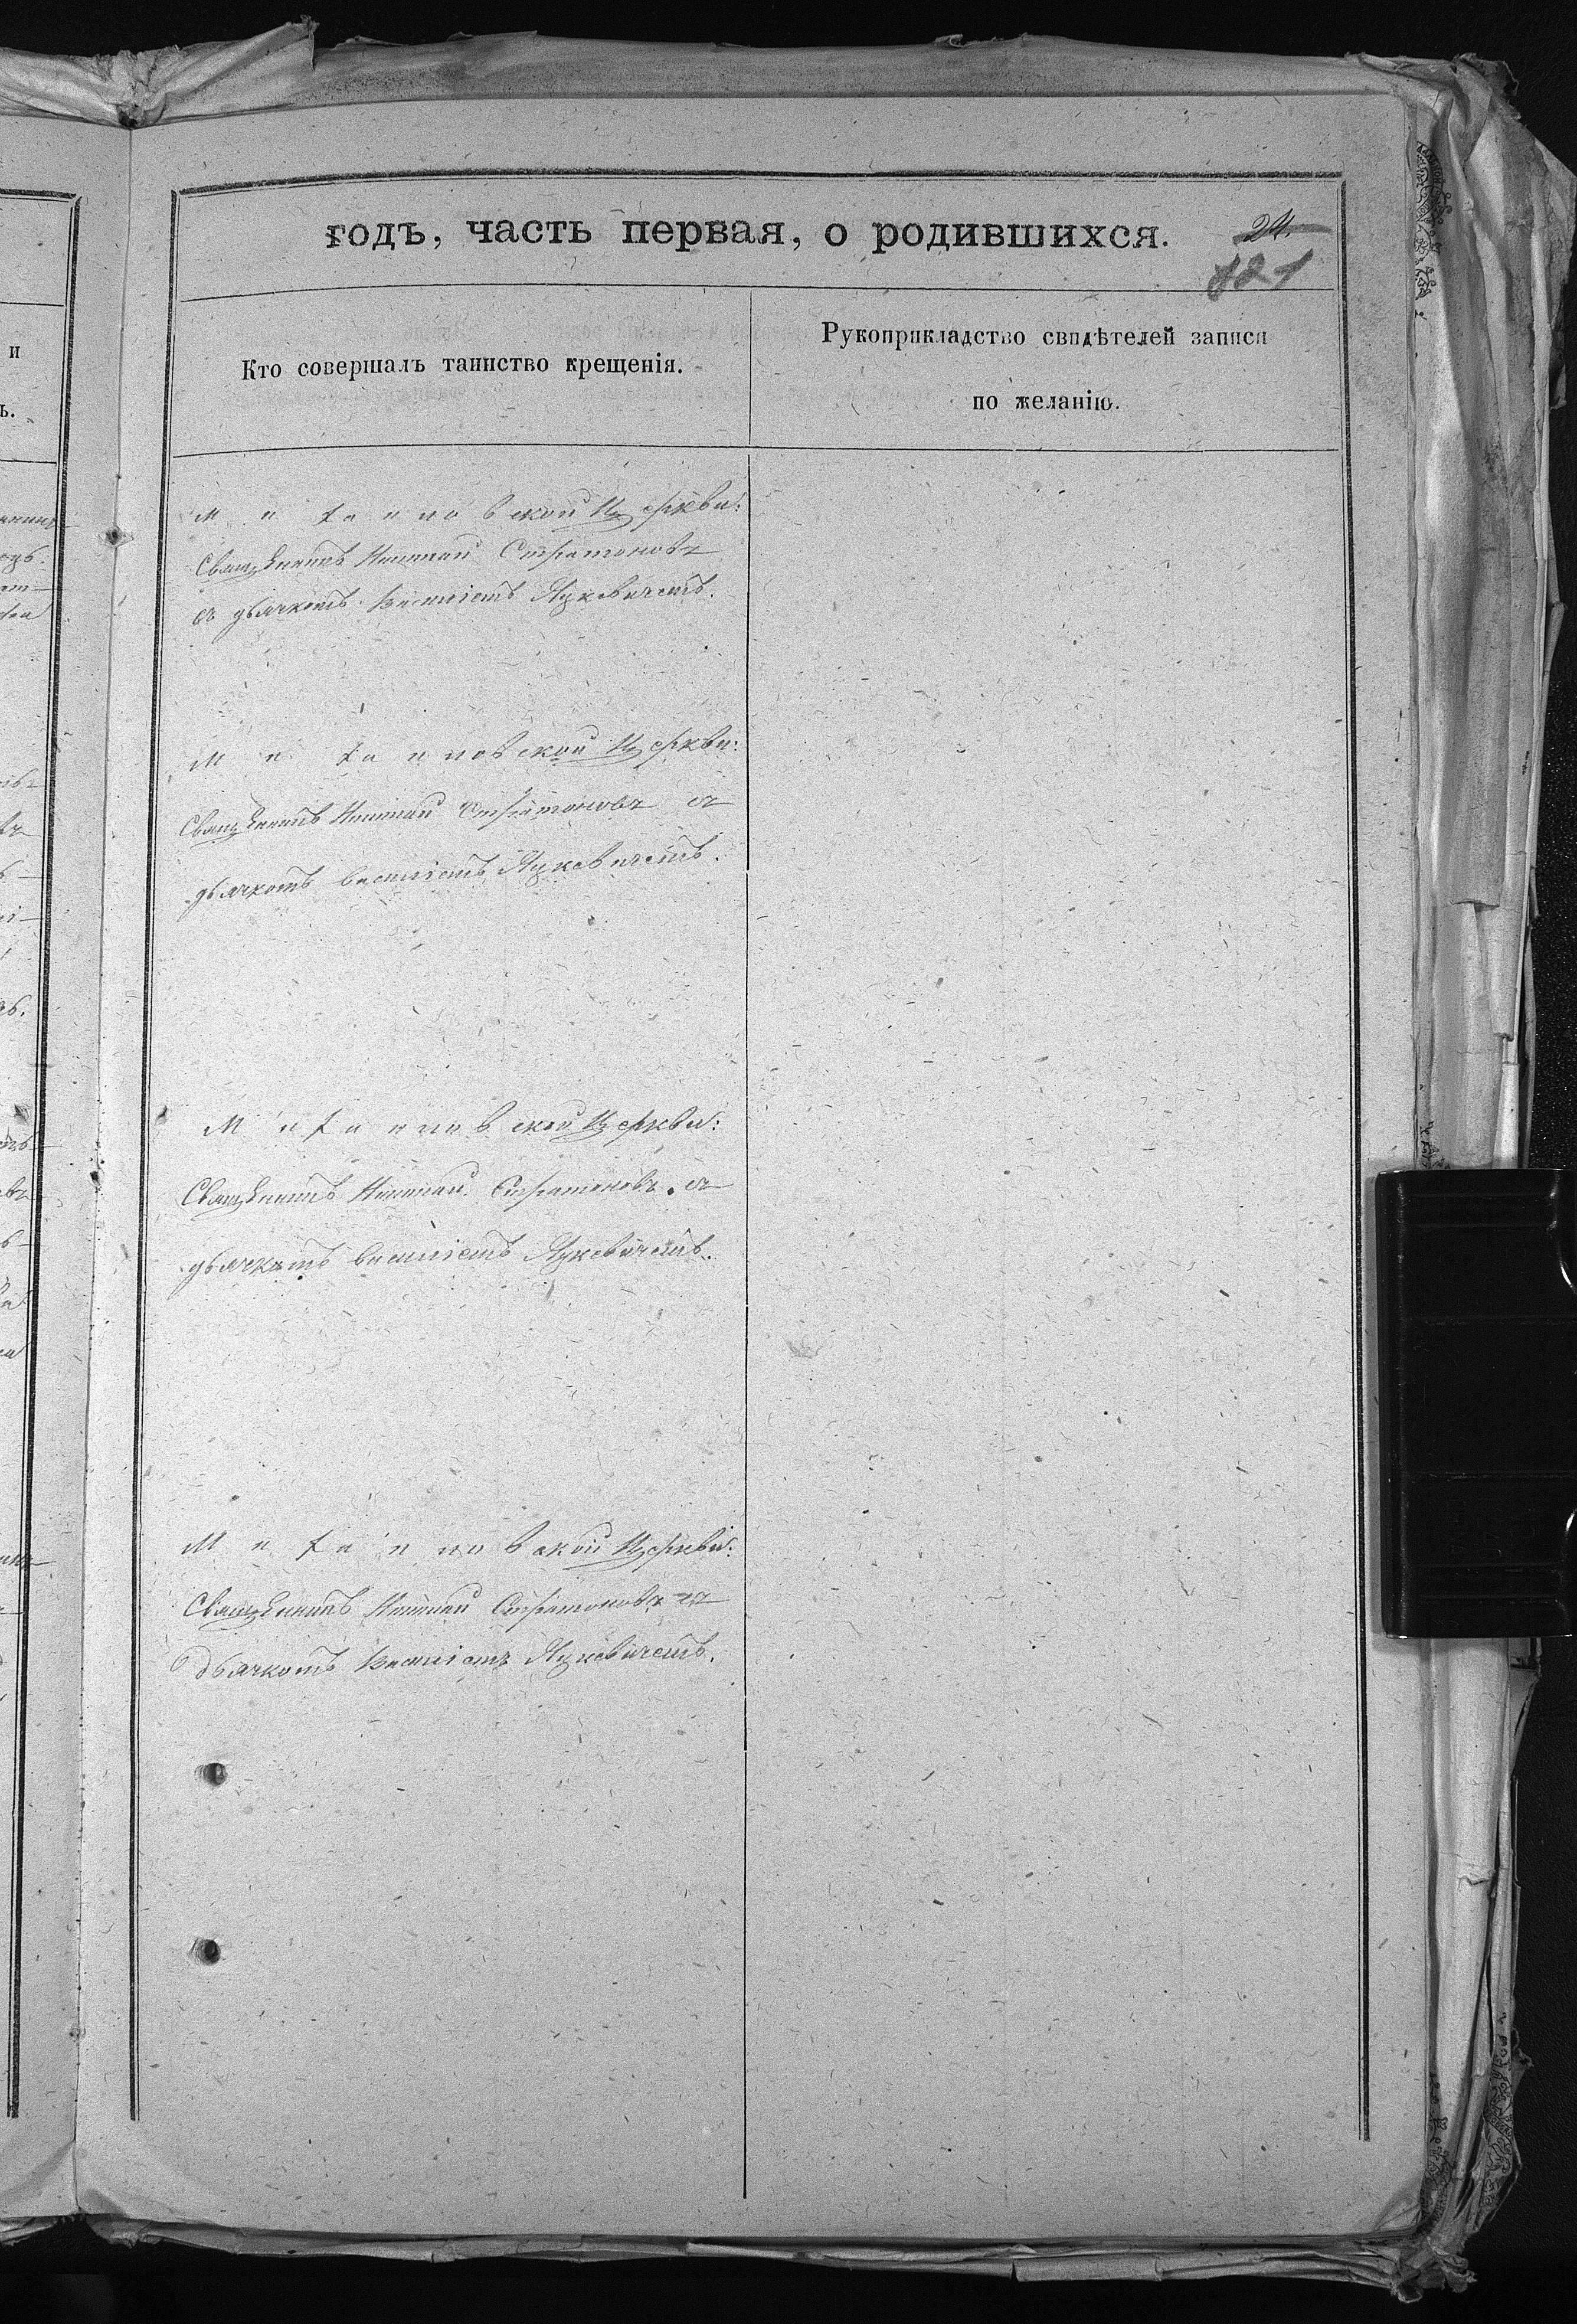 годъ, часть первая, о родившихся.
24
121
Кто совершалъ таинство крещенія.
Рукоприкладство свидѣтелей записи
по желанію.
ской Церкви:
Священникъ Николай Стратоновъ
съ дьячкомъ Василіемъ Яцкевичемъ.
ской Церкви:
Священникъ Николай Стратоновъ съ
дьячкомъ Василіемъ Яцкевичемъ.
ской Церкви:
Священникъ Николай Стратоновъ съ
дьячкомъ Василіемъ Яцкевичемъ.
ской Церкви:
Священникъ Николай Стратоновъ съ
дьячкомъ Василіемъ Яцкевичемъ.